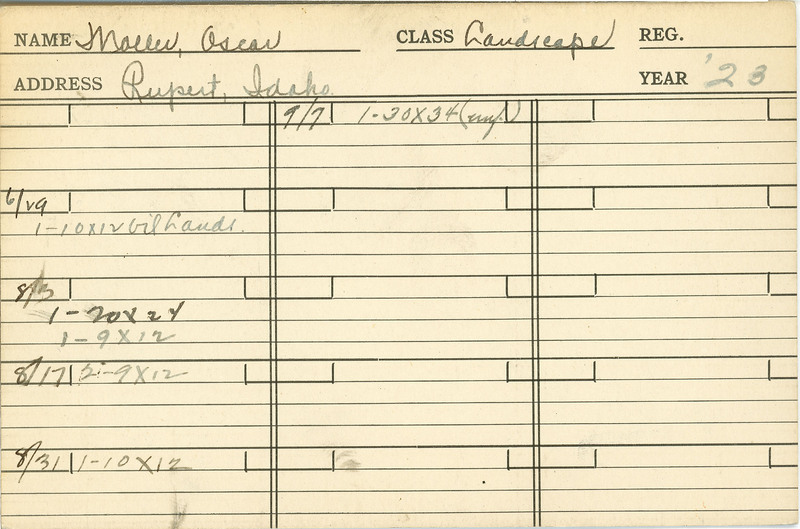 NAME Moller, Oscar CLASS Landscape REG.
ADDRESS Rupert, Idaho YEAR '23
9/7 1-30x34
6/29
1-10x12 Oil Lands.
8/3
1-20x24
1-9x12
8/17 2-9x12
8/31 1-10x12